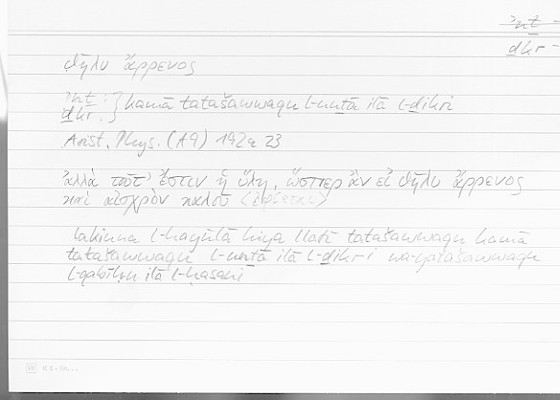 ʾnṯ -
ḏkr -
θῆλυ ἄρρενος
ʾnṯ : } kamā tatašawwaqu l-unṯā ilā l-ḏikri
ḏkr .
Arist. Phys. (A9) 192a 23
ἀλλὰ τοῦτ' ἔστιν ἡ ὕλη, ὥσπερ ἂν εἰ θῆλυ ἄρρενος
καὶ αἰσχρὸν καλοῦ (ἐφίεται)
lakinna l-hayūlā hiya llatī tatašawwaqu kamā
tatašawwaqu l-unṯā ilā l-ḏikri wa-yatašawwaqu
l-qabīḥu ilā l-ḥasani